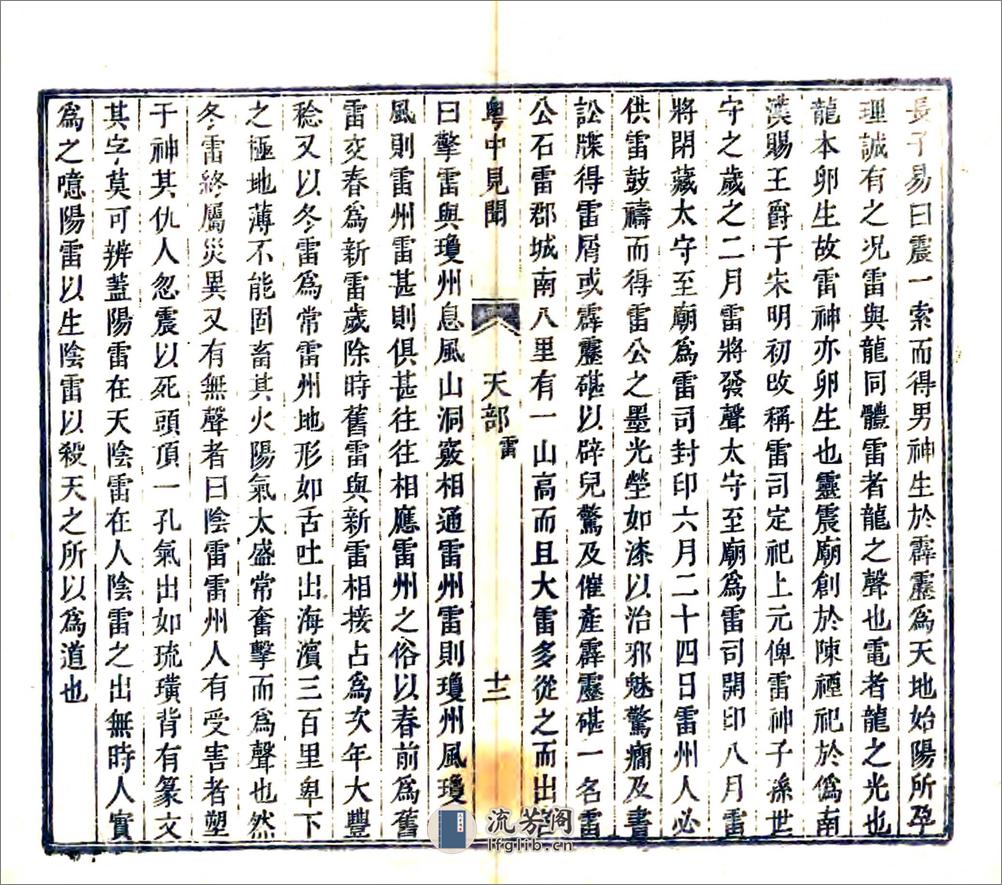 長子易曰震一索而得男神生於霹靂爲天地始陽所孕
理誠有之況雷與龍同體雷者龍之聲也電者龍之光也
龍本卵生故雷神亦卵生也靈震廟創於陳禋祀於僞南
漢賜王爵于朱明初改稱雷司定祀上元俾雷神子孫世
守之歲之二月雷將發聲太守至廟爲雷司開印八月雷
將閉藏太守至廟爲雷司封印六月二十四日雷州人必
供雷鼓禱而得雷公之墨光瑩如漆以治邪魅驚癇及書
訟牒得雷屑或霹靂碪以辟兒驚及催產霹靂碪一名雷
公石雷郡城南八里有一山高而且大雷多從之而出名
粵中見聞 天部 雷 十二
曰擎雷與瓊州息風山洞竅相通雷州雷則瓊州風瓊
風則雷州雷甚則俱甚往往相應雷州之俗以春前爲舊
雷交春爲新雷歲除時舊雷與新雷相接占爲次年大豐
稔又以冬雷爲常雷州地形如舌吐出海濱三百里卑下
之極地薄不能固畜其火陽氣太盛常奮擊而爲聲也然
冬雷終屬災異又有無聲者曰陰雷雷州人有受害者塑
于神其仇人忽震以死頭頂一孔氣出如琉璜背有篆文
其字莫可辨蓋陽雷在天陰雷在人陰雷之出無時人實
爲之噫陽雷以生陰雷以殺天之所以爲道也
流芳阁
lfglib.cn